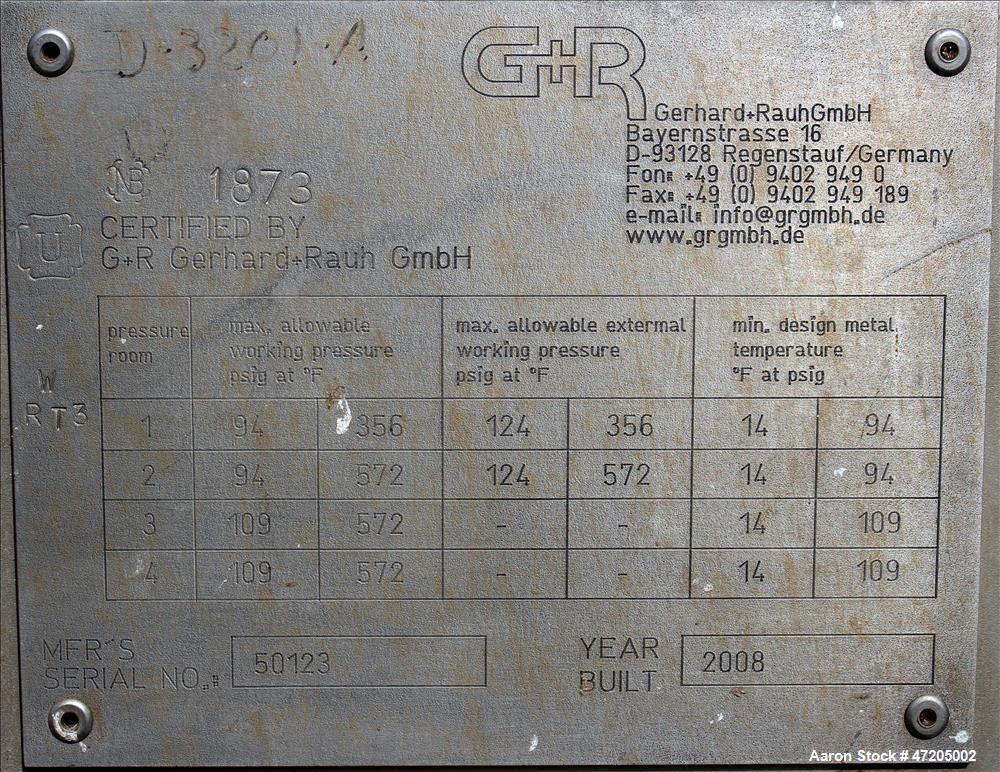 D-3201-A
G+R
Gerhard+RauhGmbH
Bayernstrasse 16
D-93128 Regenstauf/Germany
Fon: +49 (0) 9402 949 0
Fax: +49 (0) 9402 949 189
e-mail: info@grgmbh.de
www.grgmbh.de
NB 1873
U
CERTIFIED BY
G+R Gerhard+Rauh GmbH
W
RT3
pressure room
max. allowable working pressure psig at °F
max. allowable extermal working pressure psig at °F
min. design metal temperature °F at psig
1 94 356 124 356 14 94
2 94 572 124 572 14 94
3 109 572 - - 14 109
4 109 572 - - 14 109
MFR'S SERIAL NO.: 50123
YEAR BUILT 2008
Aaron Stock # 47205002